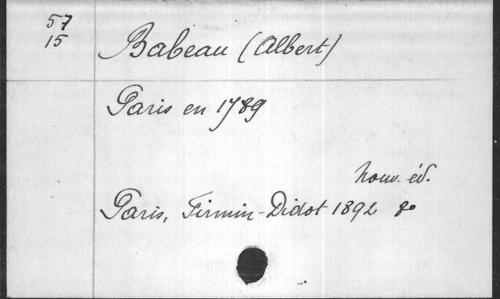 57
15
Babeau (Albert)
Paris en 1789
nouv. éd.
Paris, Firmin-Didot 1892 8º